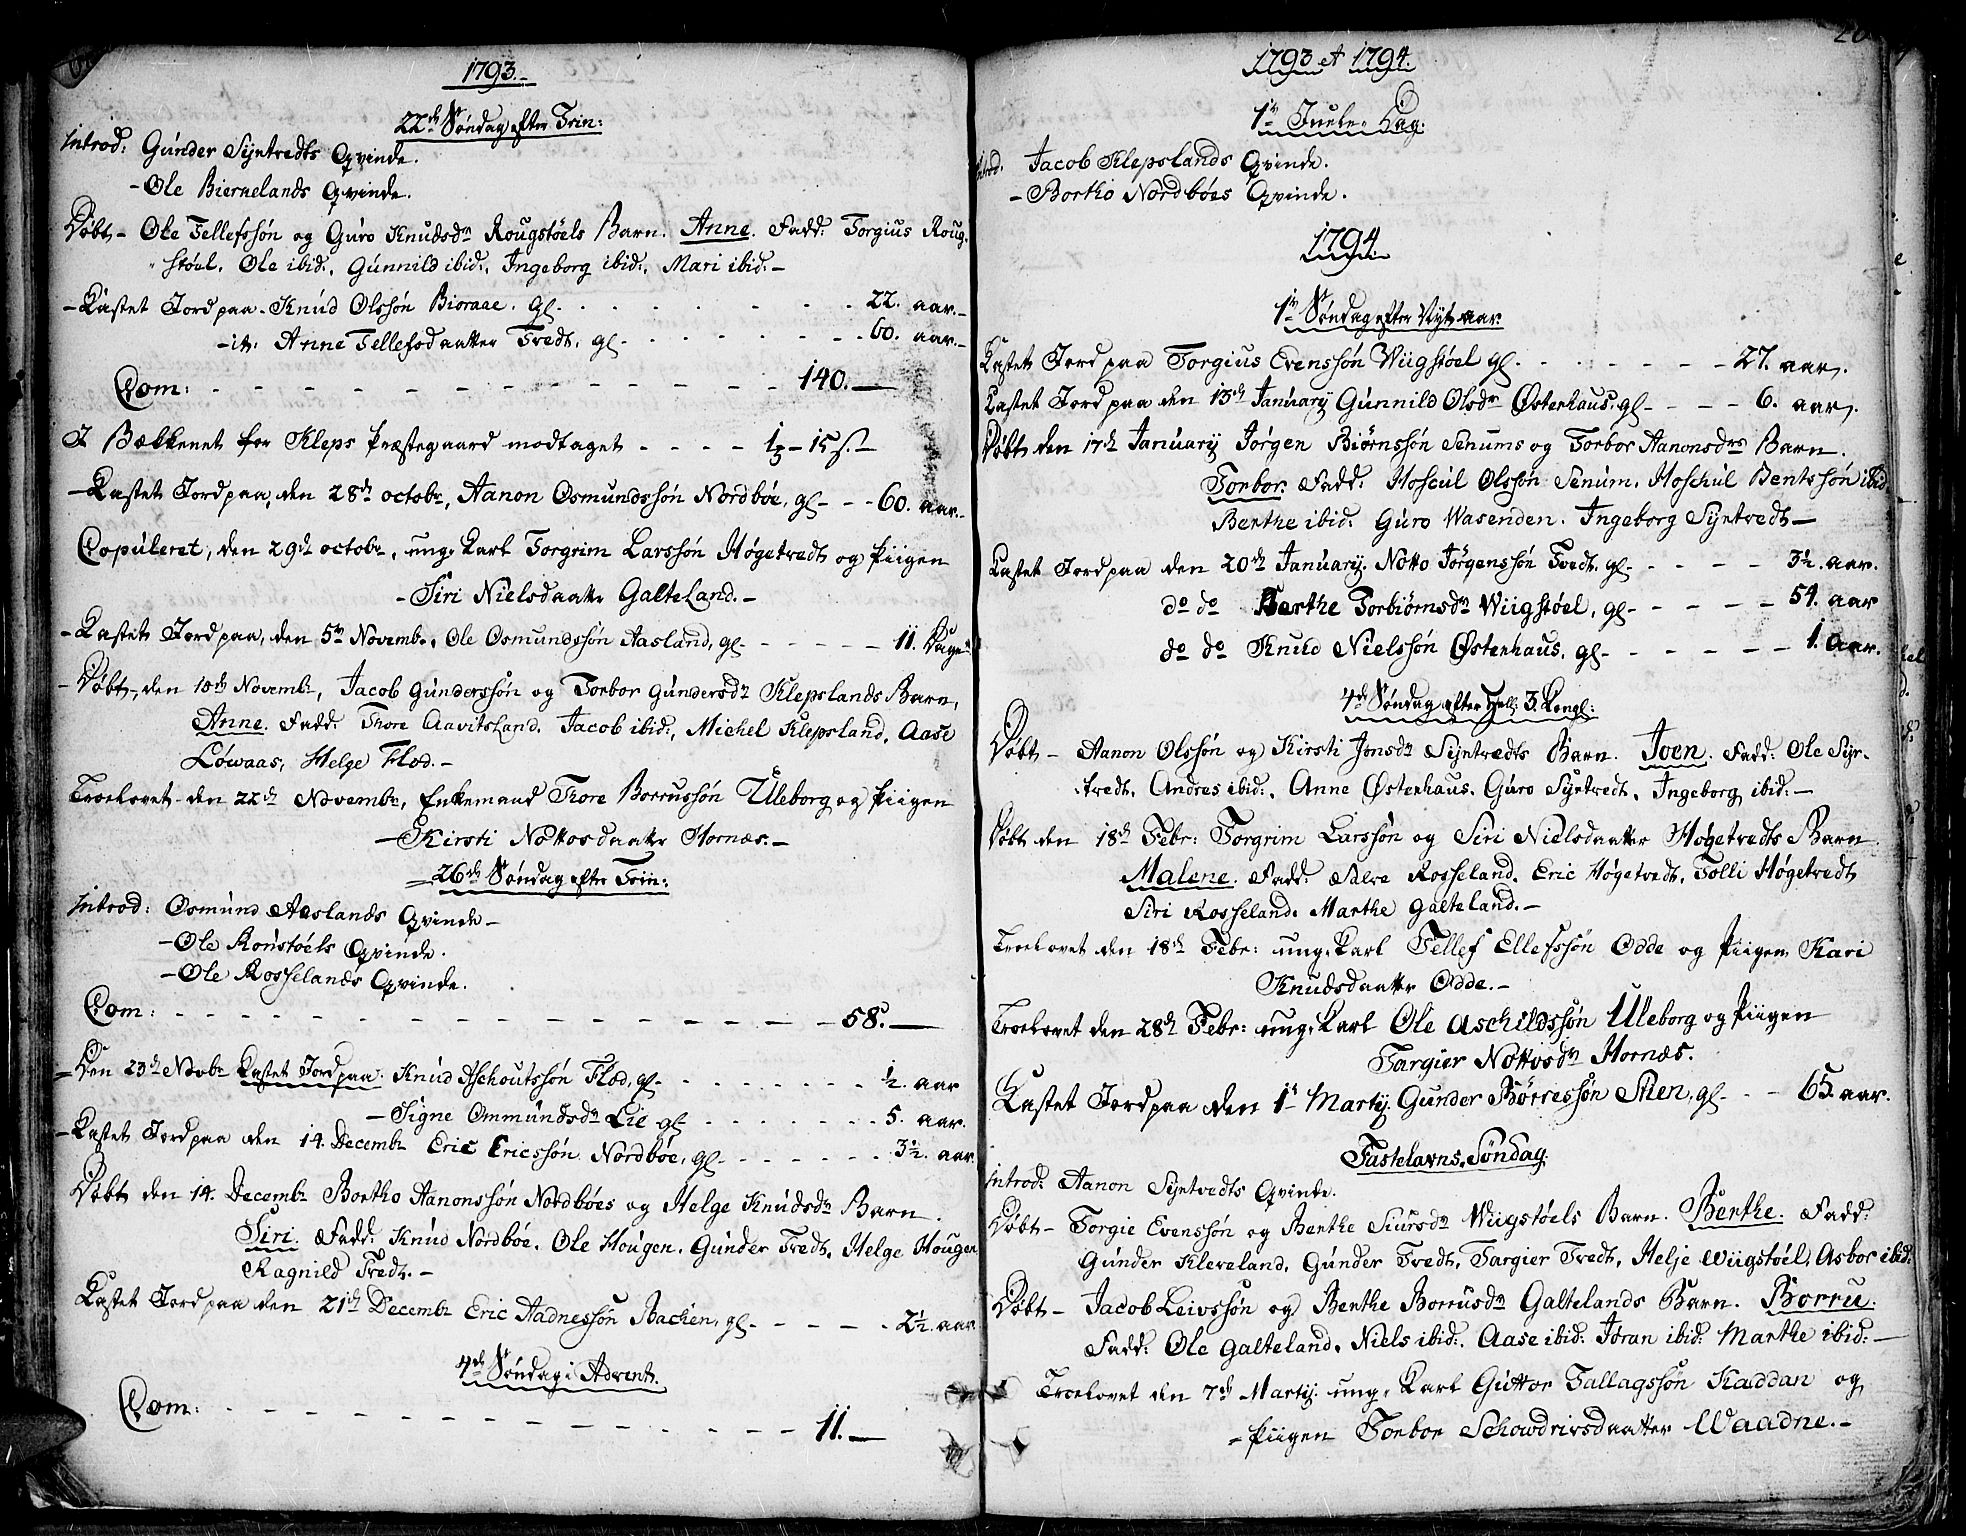 1793.
22de Søndag efter Trin:
Introd: Gunder Syntredts Qvinde.
- Ole Biernelands Qvinde.
Døbt - Ole Tellefssøn og Guro Knudsdr Rougstøels Barn. Anne. Fadd: Torgius Roug-
støel. Ole ibid:, Gunnild ibid:, Ingeborg ibid:, Mari ibid: -
- Kastet Jord paa. Knud Olssøn Bioraae. gl. 22. aar. -
- it: Anne Tellefsdaatter Tredt. gl - 60. aar. -
Com: - 140. -
I Bækkenet for Kleps Præstegaard modtaget - - - - 15 s. -
- Kastet Jord paa, den 28de octobr, Aanon Osmundssøn Nordbøe, gl - - 60. aar. -
Copuleret, den 29de octobr, ung-Karl Torgrim Larssøn Høgetredt og Piigen
- Siri Nielsdaatter Galteland. -
- Kastet Jord paa, den 5te Novemb., Ole Osmundssøn Aasland, gl - 11. Dage
- Døbt, den 10de Novembr, Jacob Gunderssøn og Torbor Gundersdr Klepslands Barn,
Anne. Fadd: Thore Aavitsland. Jacob ibid:, Michel Klepsland, Aase
Løwaas, Helge Flod. -
Troelovet - den 22de Novembr, Enkemand Thore Borrussøn Uleborg og Piigen
- Kirsti Nottosdaatter Hornæs. -
26de Søndag efter Trin:
Introd: Osmund Aaslands Qvinde -
- Ole Ronstøels Qvinde.
- Ole Rosselands Qvinde.
Com: - 58. -
Den 23de Novbr Kastet Jord paa. Knud Aschoutssøn Flod, gl - ½. aar
- Signe Ommundsdr Lie gl - 5. aar.
- Kastet Jord paa den 14. Decembr Eric Ericssøn Nordbøe, gl - 3½. aar.
Døbt den 14. Decembr Bortho Aanonssøn Nordbøes og Helge Knudsdr Barn.
Siri. Fadd: Knud Nordbøe. Ole Hougen. Gunder Tredt. Helge Hougen
Ragnild Tredt. -
Kastet Jord paa den 21de Decembr Eric Aadnessøn Bachen, gl - 2½. aar
4de Søndag i Advent.
Com: - 11. -
1793 et 1794.
1te Juele-Dag.
Introd. Jacob Klepslands Qvinde.
- Bortho Nordbøes Qvinde.
1794.
1te Søndag efter Nyt aar.
Kastet Jord paa Torgius Evenssøn Wiigstøel gl. 27. aar.
Kastet Jord paa den 13de January Gunnild Olsdr Østerhaus, gl - 6. aar.
Døbt den 17de January Jørgen Biørnssøn Senums og Torbor Aanonsdrs Barn.
Torbor. Fadd: Hoscul Olssøn Senum, Hoschul Bentssøn ibid.
Berthe ibid: Guro Wasenden. Ingeborg Syntredt -
Kastet Jord paa den 20de January. Notto Jørgenssøn Tredt. gl - 3½. aar.
do do Berthe Torbiørnsdr Wiigstøel, gl - 54. aar
do do Knud Nielssøn Østerhaus. gl - 1. aar.
4de Søndag efter Hell: 3. Kongl:
Døbt - Aanon Olssøn og Kirsti Jonsdr Syntredts Barn. Joen. Fadd: Ole Syn-
tredt. Andres ibid:, Anne Østerhaus. Guro Syntredt, Ingeborg ibid: -
Døbt den 18de Febr: Torgrim Larssøn og Siri Nielsdaatter Høgetredts Barn.
Malene. Fadd: Salve Rosseland. Eric Høgetredt. Tolli Høgetredt
Siri Rosseland. Marthe Galteland. -
Troelovet den 18de Febr: ung-Karl Tellef Ellefssøn Odde og Piigen Kari
Knudsdaatter Odde. -
Troelovet den 28de Febr: ung-Karl Ole Aschildssøn Uleborg og Piigen
Targier Nottosdr Hornæs.
Kastet Jord paa den 1te Martij. Gunder Børressøn Steen, gl - - 65. aar.
Fastelavns-Søndag.
Introd: Aanon Syntredts Qvinde.
Døbt - Torgie Evenssøn og Berthe Siursdr Wiigstøels Barn. Berthe. Fadd:
Gunder Kleveland, Gunder Tredt, Targier Tredt, Helje Wiigstøel, Asbor ibid:
Døbt - Jacob Leivssøn og Berthe Borrusdr Galtelands Barn. Borru.
Fadd: Ole Galteland. Niels ibid:, Aase ibid: Jøran ibid: Marthe ibid: -
Troelovet den 7de Martij ung-Karl Guttor Tallagssøn Kaddan og
- Piigen Torbor Schowdrivsdaatter Waadne. -